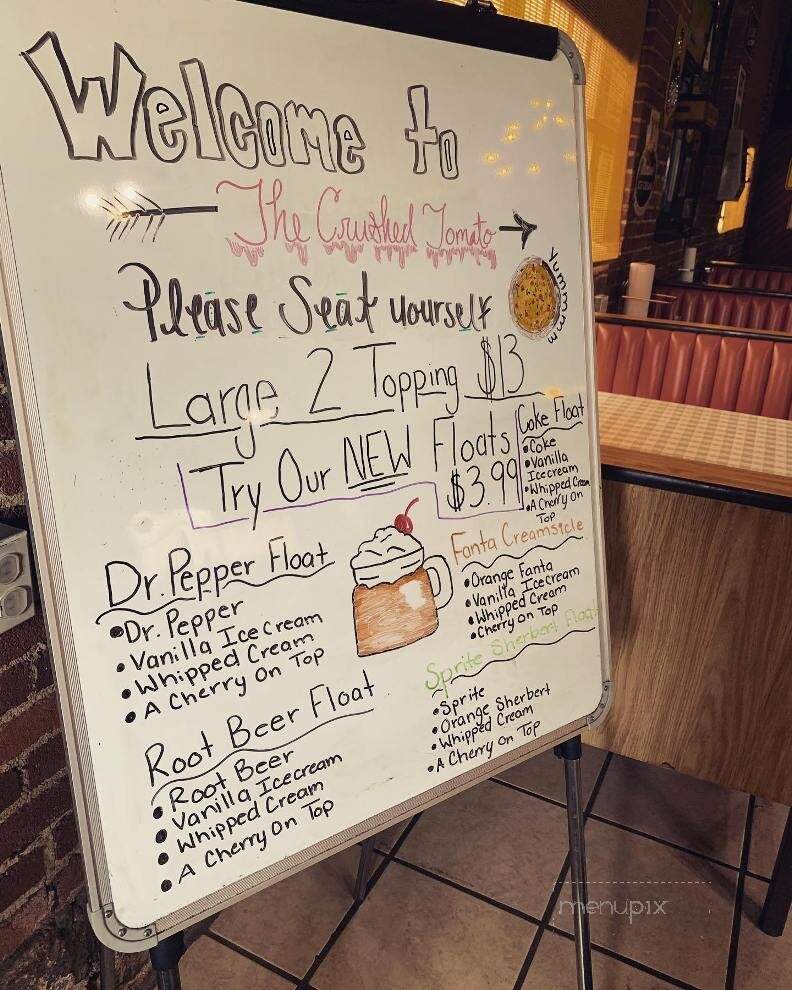 Welcome to
The Crushed Tomato
Please Seat yourself
Yummmmm
Large 2 Topping $13
Try Our NEW Floats
$3.99
Coke Float
•Coke
•Vanilla
Icecream
•Whipped Cream
•A Cherry On
Top
Dr. Pepper Float
•Dr. Pepper
•Vanilla Ice Cream
•Whipped Cream
•A Cherry On Top
Fanta Creamsicle
•Orange Fanta
•Vanilla Icecream
•Whipped Cream
•Cherry on Top
Root Beer Float
•Root Beer
•Vanilla Icecream
•Whipped Cream
•A Cherry On Top
Sprite Sherbert Float
•Sprite
•Orange Sherbert
•Whipped Cream
•A Cherry On Top
menupix